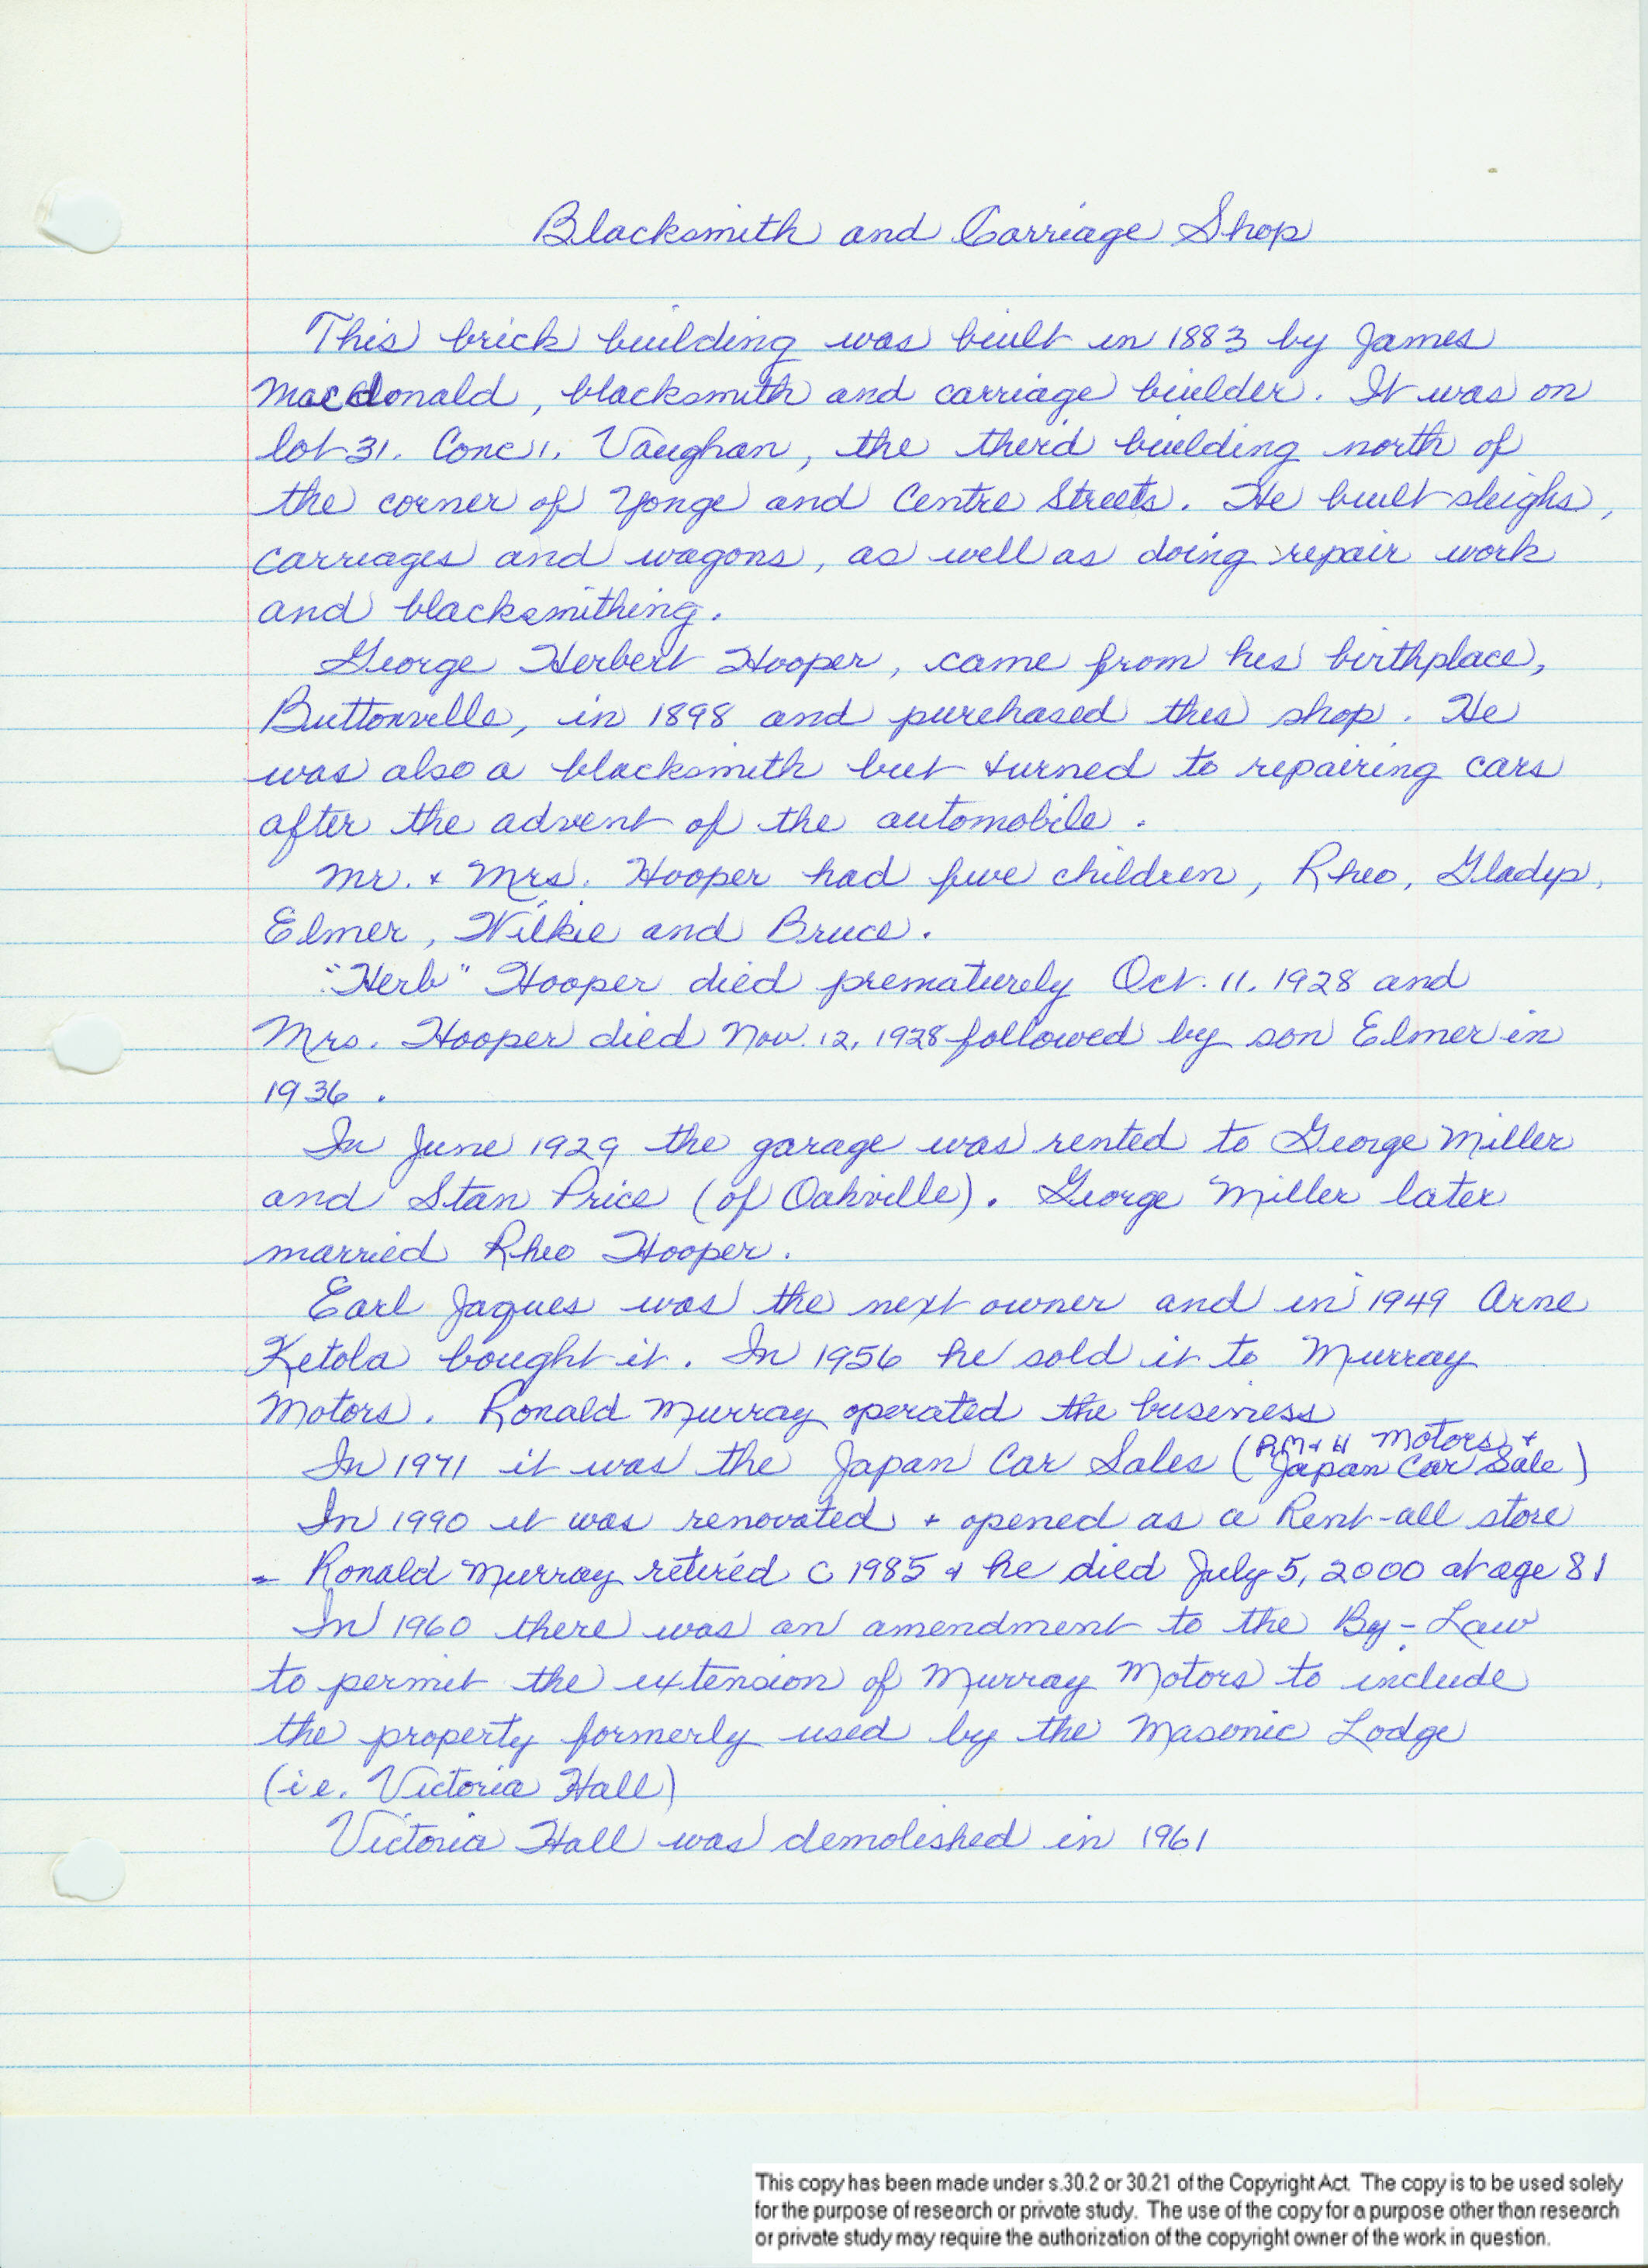 Blacksmith and Carriage Shop
This brick building was built in 1883 by James
Macdonald, blacksmith and carriage builder. It was on
lot 31. Conc 1. Vaughan, the third building north of
the corner of Yonge and Centre Streets. He built sleighs,
carriages and wagons, as well as doing repair work
and blacksmithing.
George Herbert Hooper, came from his birthplace,
Buttonville, in 1898 and purchased this shop. He
was also a blacksmith but turned to repairing cars
after the advent of the automobile.
Mr. + Mrs. Hooper had five children, Rheo, Gladys,
Elmer, Wilkie and Bruce.
"Herb" Hooper died prematurely Oct. 11. 1928 and
Mrs. Hooper died Nov. 12, 1928 followed by son Elmer in
1936.
In June 1929 the garage was rented to George Miller
and Stan Price (of Oakville). George Miller later
married Rheo Hooper.
Earl Jaques was the next owner and in 1949 Arne
Ketola bought it. In 1956 he sold it to Murray
Motors. Ronald Murray operated the business
In 1971 it was the Japan Car Sales (RM + H Motors +
Japan Car Sale)
In 1990 it was renovated + opened as a Rent-all store
- Ronald Murray retired c 1985 + he died July 5, 2000 at age 81
In 1960 there was an amendment to the By-Law
to permit the extension of Murray Motors to include
the property formerly used by the Masonic Lodge
(i.e. Victoria Hall)
Victoria Hall was demolished in 1961
This copy has been made under s.30.2 or 30.21 of the Copyright Act. The copy is to be used solely
for the purpose of research or private study. The use of the copy for a purpose other than research
or private study may require the authorization of the copyright owner of the work in question.